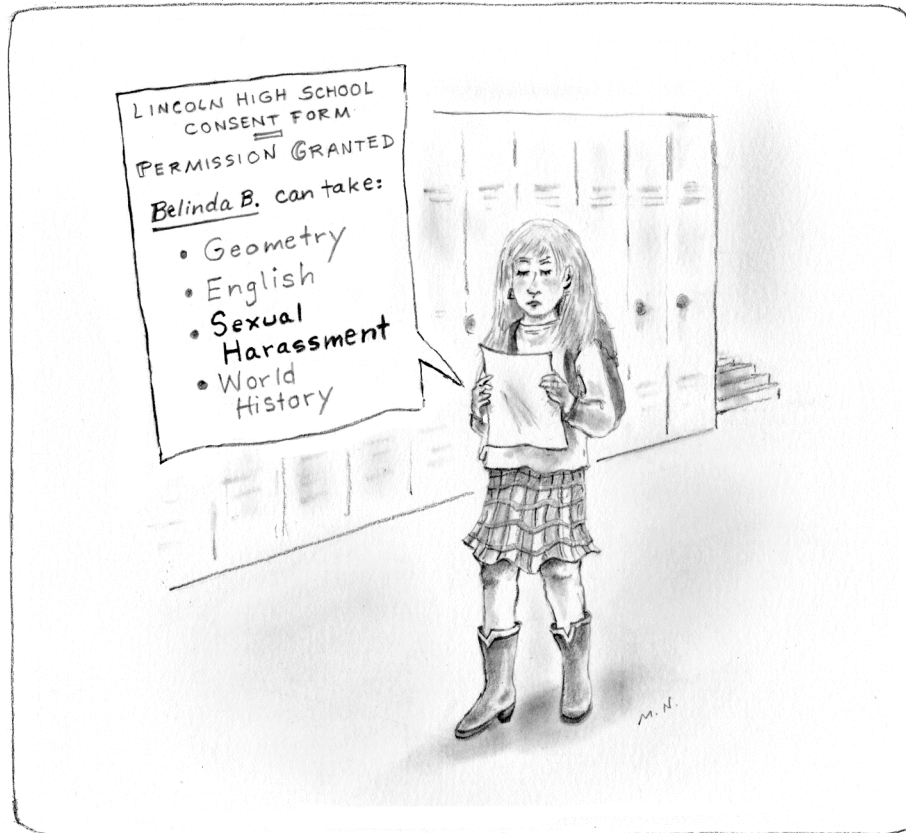 LINCOLN HIGH SCHOOL
CONSENT FORM
PERMISSION GRANTED
Belinda B. can take:
• Geometry
• English
• Sexual
Harassment
• World
History
M.N.